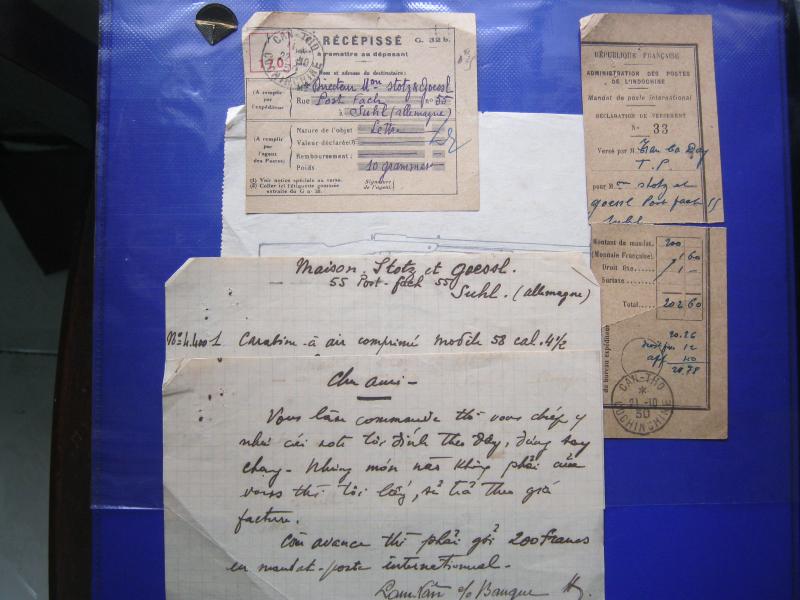 RÉCÉPISSÉ G. 32 b.
à remettre au déposant
CAN-THO
COCHINCHINE
Nom et adresse du destinataire:
Directeur Mon Stotz & Goessl
Rue Post Fach n° 55
à Suhl (allemagne)
(A remplir par l'expéditeur)
(A remplir par l'agent des Postes)
Nature de l'objet Lettre
Valeur déclarée
Remboursement:
Poids 10 grammes
(1) Voir notice spéciale au verso.
(2) Coller ici l'étiquette gommée
extraite du G n° 28.
Signature
de l'agent.
RÉPUBLIQUE FRANÇAISE
ADMINISTRATION DES POSTES
DE L'INDOCHINE
Mandat de poste international
DÉCLARATION DE VERSEMENT
N° 33
Versé par M. Tran ba
T. P.
pour M. Stotz et
goessl Post fach 55
Suhl
Montant du mandat. 200
(Monnaie Française) 1 60
Droit fixe 1 -
Surtaxe
Total 202 60
du bureau expéditeur
20.26
12
40
20.78
CAN-THO
21-10
30
COCHINCHINE
Maison, Stotz et goessl.
55 Post-fach 55
Suhl. (allemagne)
N° 4.400-1 Carabine à air comprimé modèle 58 cal. 4½
Cher ami -
Vous làm commande thì vous chép y
như cái note tôi đính theo đây, đừng say
chạy - Những món nào không phải của
vous thì tôi lấy, sẽ trả theo giá
facture.
Còn avance thì phải gởi 200 francs
en mandat-poste international -
Banque